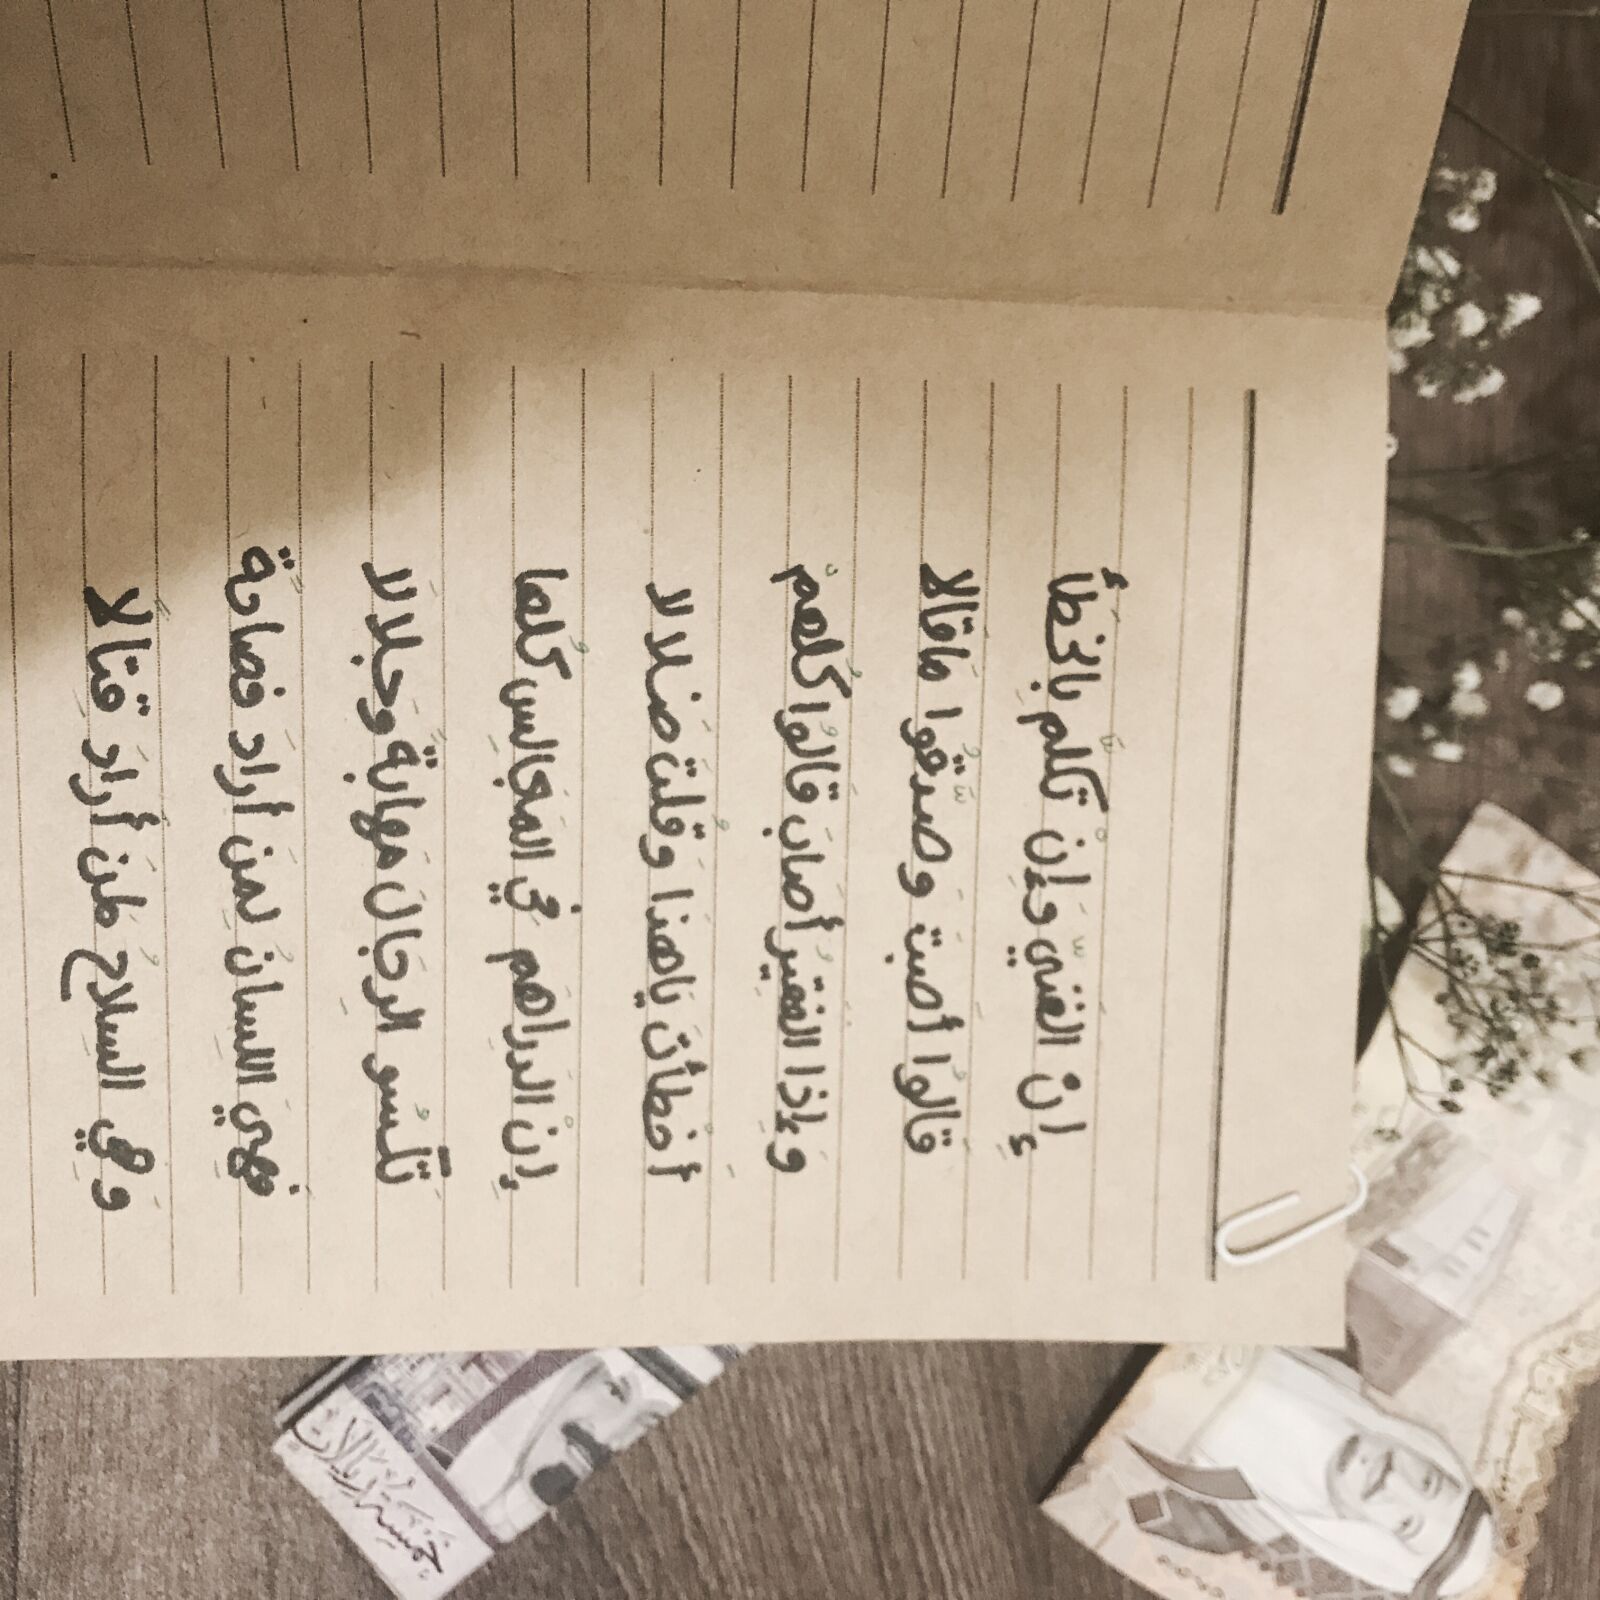 إِنْ الغَنيّ وَإِنْ تَكلّم بِالخَطَأ
قَالُوا أصَبتَ وَصَدّقُوا مَاقَالا
وَإِذا الفَقِيرُ أصَابَ قَالُوا كُلهُمْ
أخْطَأتَ يَاهَذا وَقُلتَ ضَلالا
إِنْ الدَراهَم فِي المَجَالِس كُلها
تَكْسُو الرِجَالَ مَهابةً وَجَلالَا
فَهِيَ اللِسَانُ لِمَن أَرادَ فَصَاحةً
وَهِي السِلاحُ لمَن أَرادَ قِتَالًا
خمسة ريالات